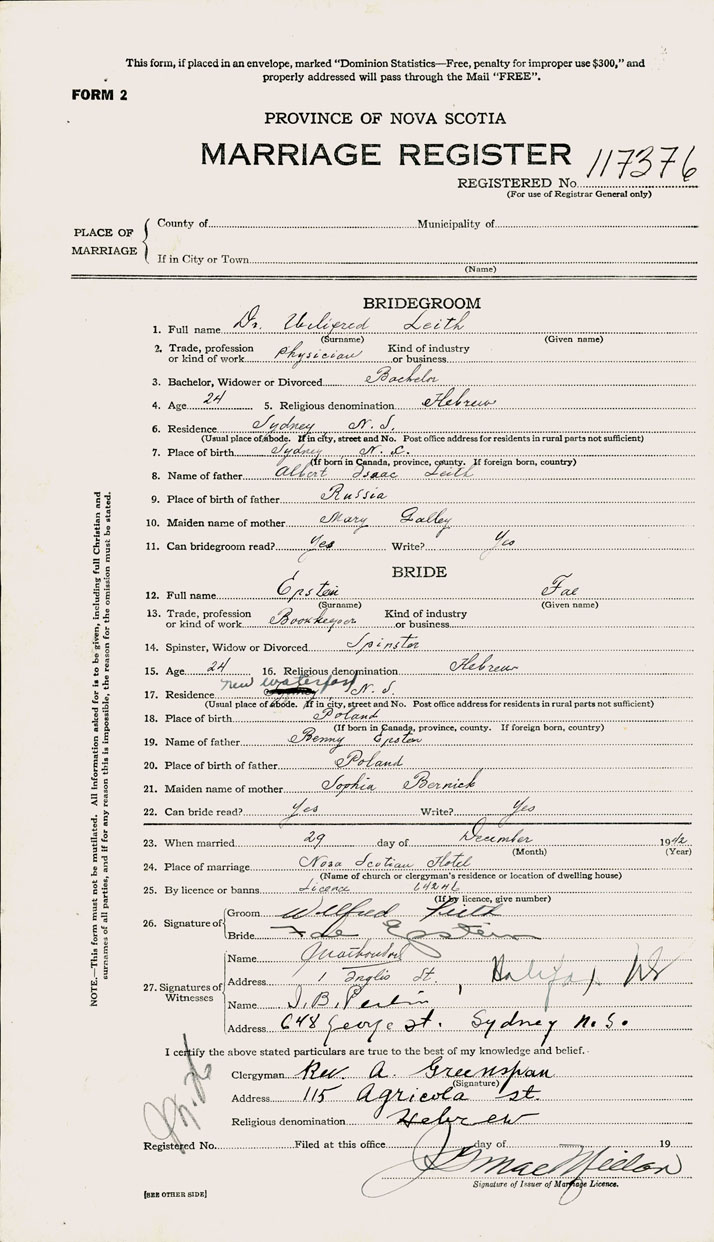 This form, if placed in an envelope, marked "Dominion Statistics—Free, penalty for improper use $300," and
properly addressed will pass through the Mail "FREE".
FORM 2
PROVINCE OF NOVA SCOTIA
MARRIAGE REGISTER 117376
REGISTERED No.
(For use of Registrar General only)
PLACE OF MARRIAGE
County of Municipality of
If in City or Town
(Name)
BRIDEGROOM
1. Full name Dr. Wilfred Leith
(Surname) (Given name)
2. Trade, profession or kind of work Physician Kind of industry or business
3. Bachelor, Widower or Divorced Bachelor
4. Age 24 5. Religious denomination Hebrew
6. Residence Sydney N. S.
(Usual place of abode. If in city, street and No. Post office address for residents in rural parts not sufficient)
7. Place of birth Sydney N. S.
(If born in Canada, province, county. If foreign born, country)
8. Name of father Albert Isaac Leith
9. Place of birth of father Russia
10. Maiden name of mother Mary Galley
11. Can bridegroom read? Yes Write? Yes
BRIDE
12. Full name Epstein Fae
(Surname) (Given name)
13. Trade, profession or kind of work Bookkeeper Kind of industry or business
14. Spinster, Widow or Divorced Spinster
15. Age 24 16. Religious denomination Hebrew
17. Residence New Waterford N. S.
(Usual place of abode. If in city, street and No. Post office address for residents in rural parts not sufficient)
18. Place of birth Poland
(If born in Canada, province, county. If foreign born, country)
19. Name of father Benny Epstein
20. Place of birth of father Poland
21. Maiden name of mother Sophia Bernick
22. Can bride read? Yes Write? Yes
23. When married 29 day of December 1942
(Month) (Year)
24. Place of marriage Nova Scotian Hotel
(Name of church or clergyman's residence or location of dwelling house)
25. By licence or banns Licence 64246
(If by licence, give number)
26. Signature of Groom Wilfred Leith
Bride Fae Epstein
27. Signatures of Witnesses
Name
Address 1 Inglis St. Halifax NS
Name I. B. Perlin
Address 648 George St. Sydney N.S.
I certify the above stated particulars are true to the best of my knowledge and belief.
Clergyman Rev. A. Greenspan
(Signature)
Address 115 Agricola St.
Religious denomination Hebrew
Registered No. Filed at this office day of 19
MacMillan
Signature of Issuer of Marriage Licence.
[SEE OTHER SIDE]
NOTE.—This form must not be mutilated. All information asked for is to be given, including full Christian and
surnames of all parties, and if for any reason this is impossible, the reason for the omission must be stated.